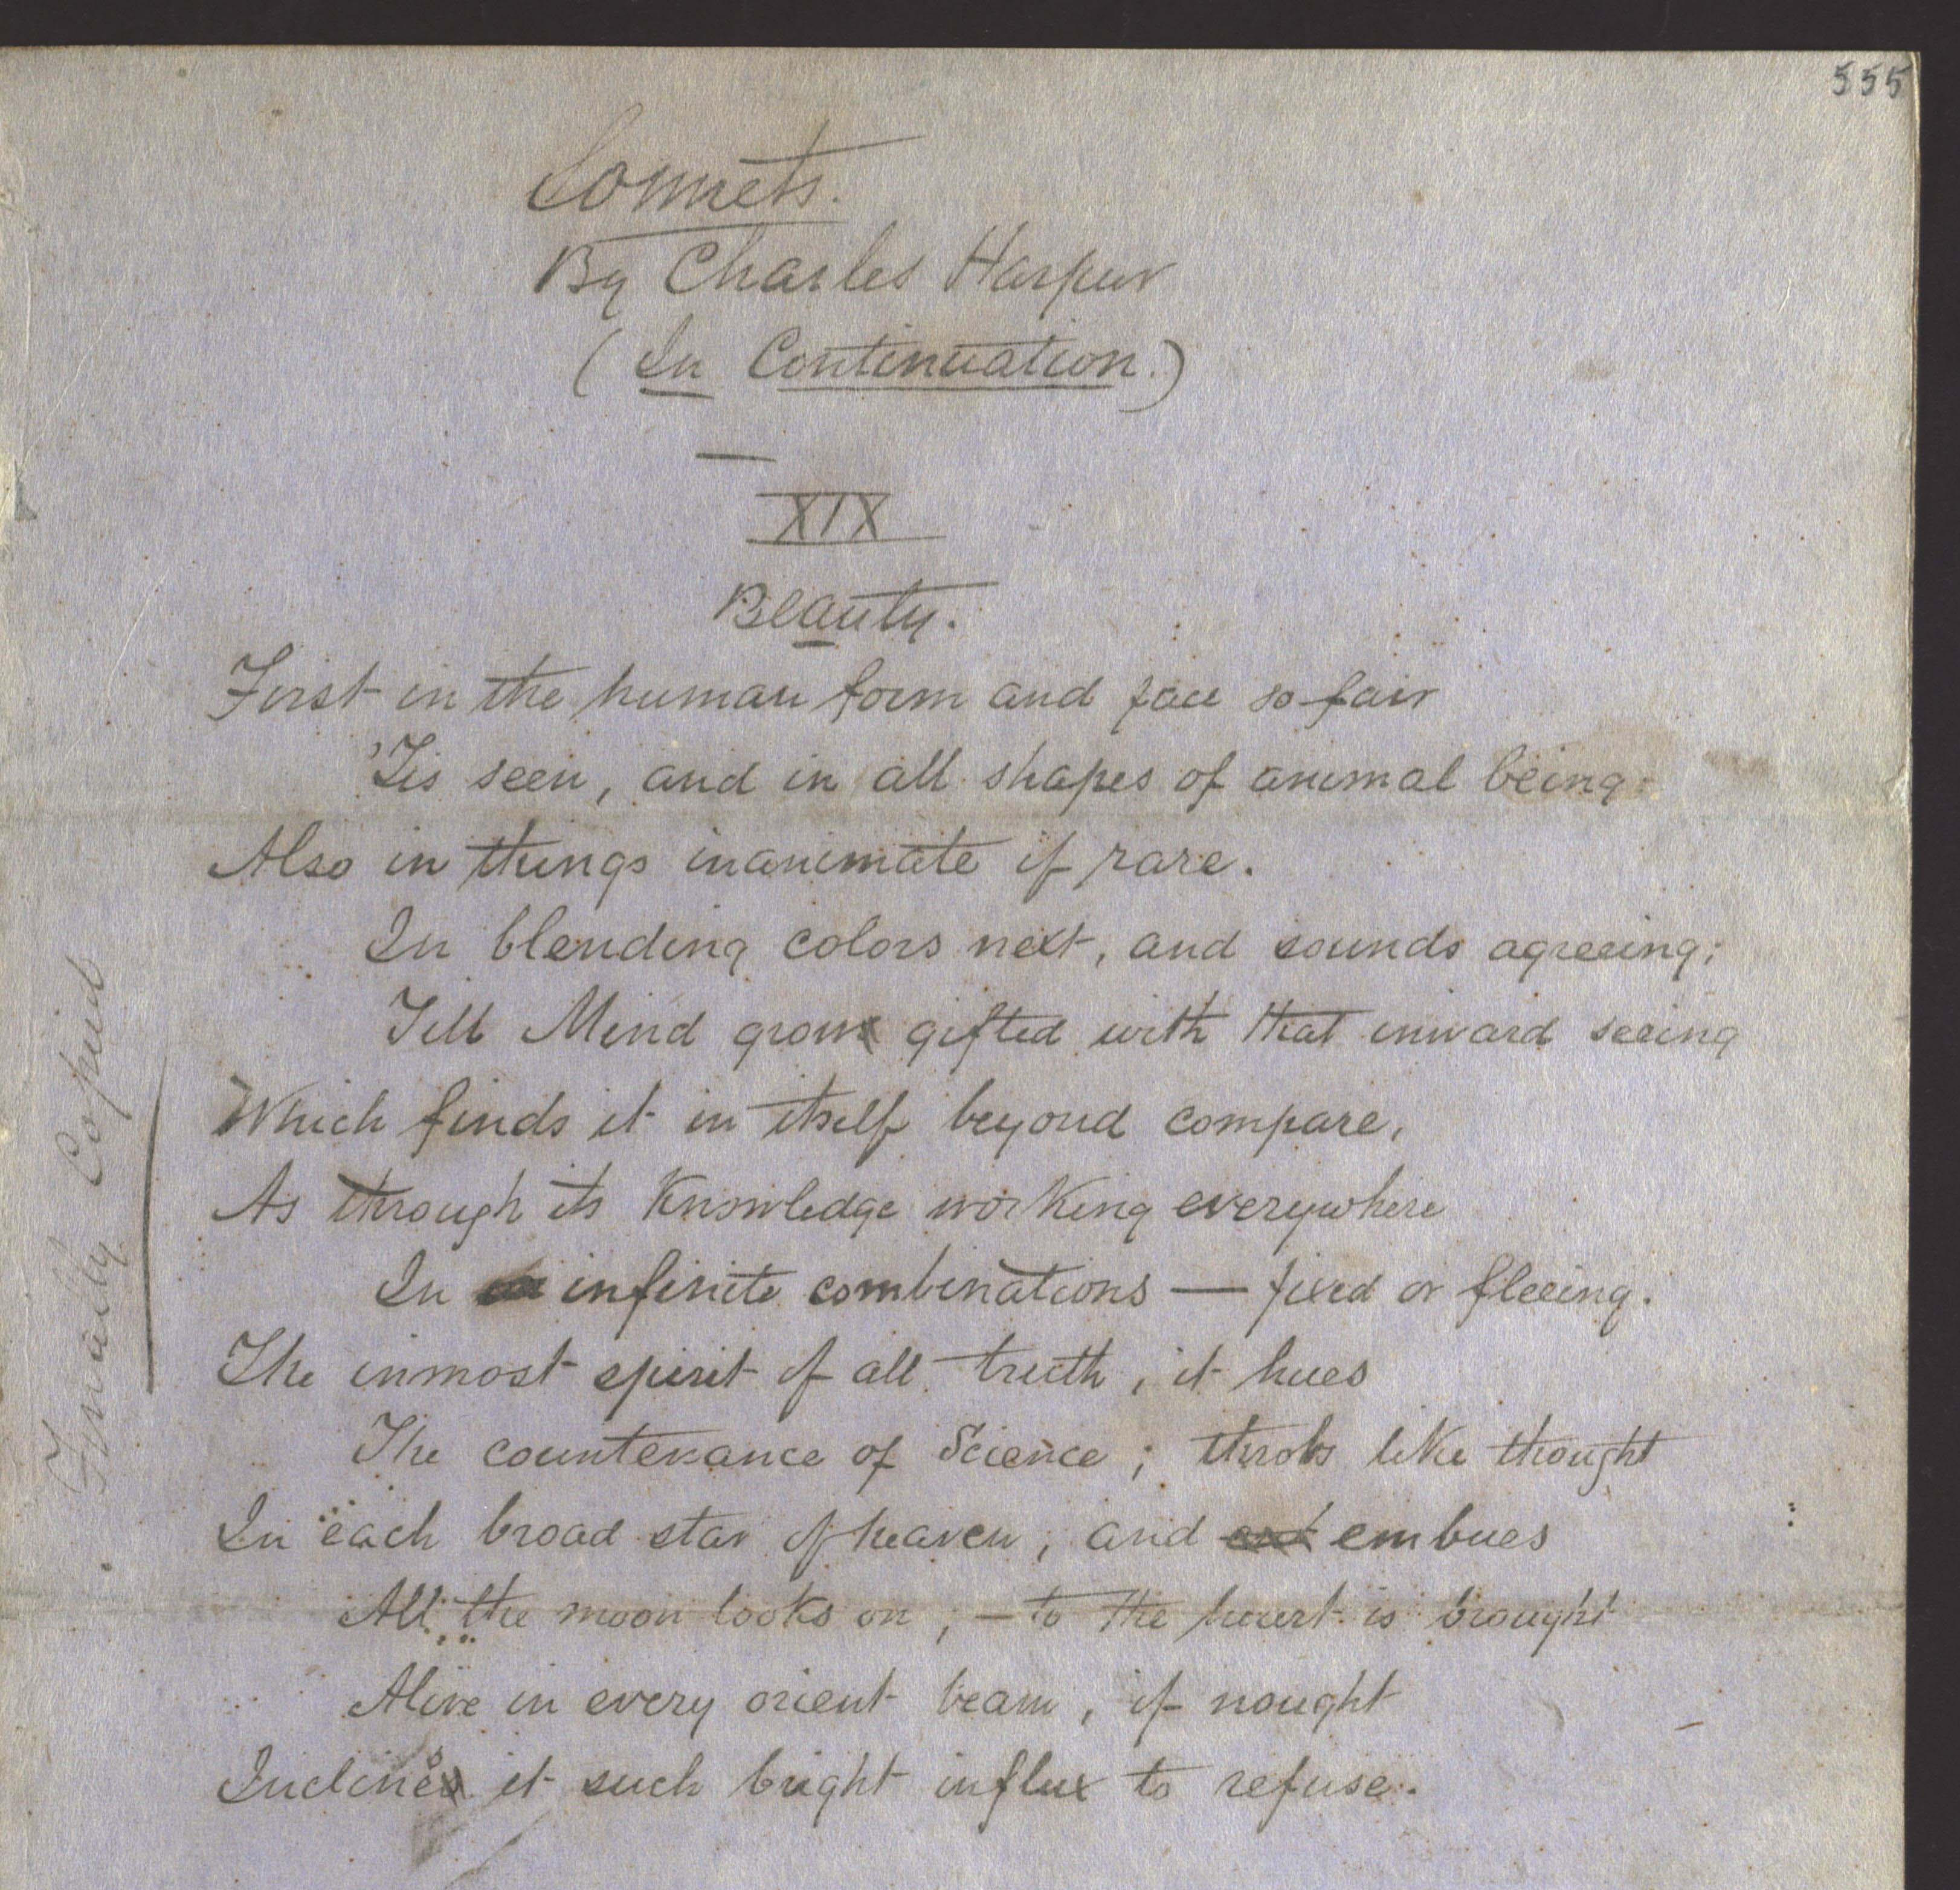 555
Sonnets.
By Charles Harpur
(In Continuation.)
XIX
Beauty.
First in the human form and face so fair
'Tis seen, and in all shapes of animal being
Also in things inanimate if rare.
In blending colors next, and sounds agreeing;
Till Mind grow gifted with that inward seeing
Which finds it in itself beyond compare,
As through its Knowledge working everywhere
In infinite combinations — fixed or fleeing.
The inmost spirit of all truth, it hues
The countenance of Science; throbs like thought
In each broad star of heaven, and embues
All the moon looks on, — to the heart is brought
Alive in every orient beam, if nought
Incline it such bright influx to refuse.
Finally Copied